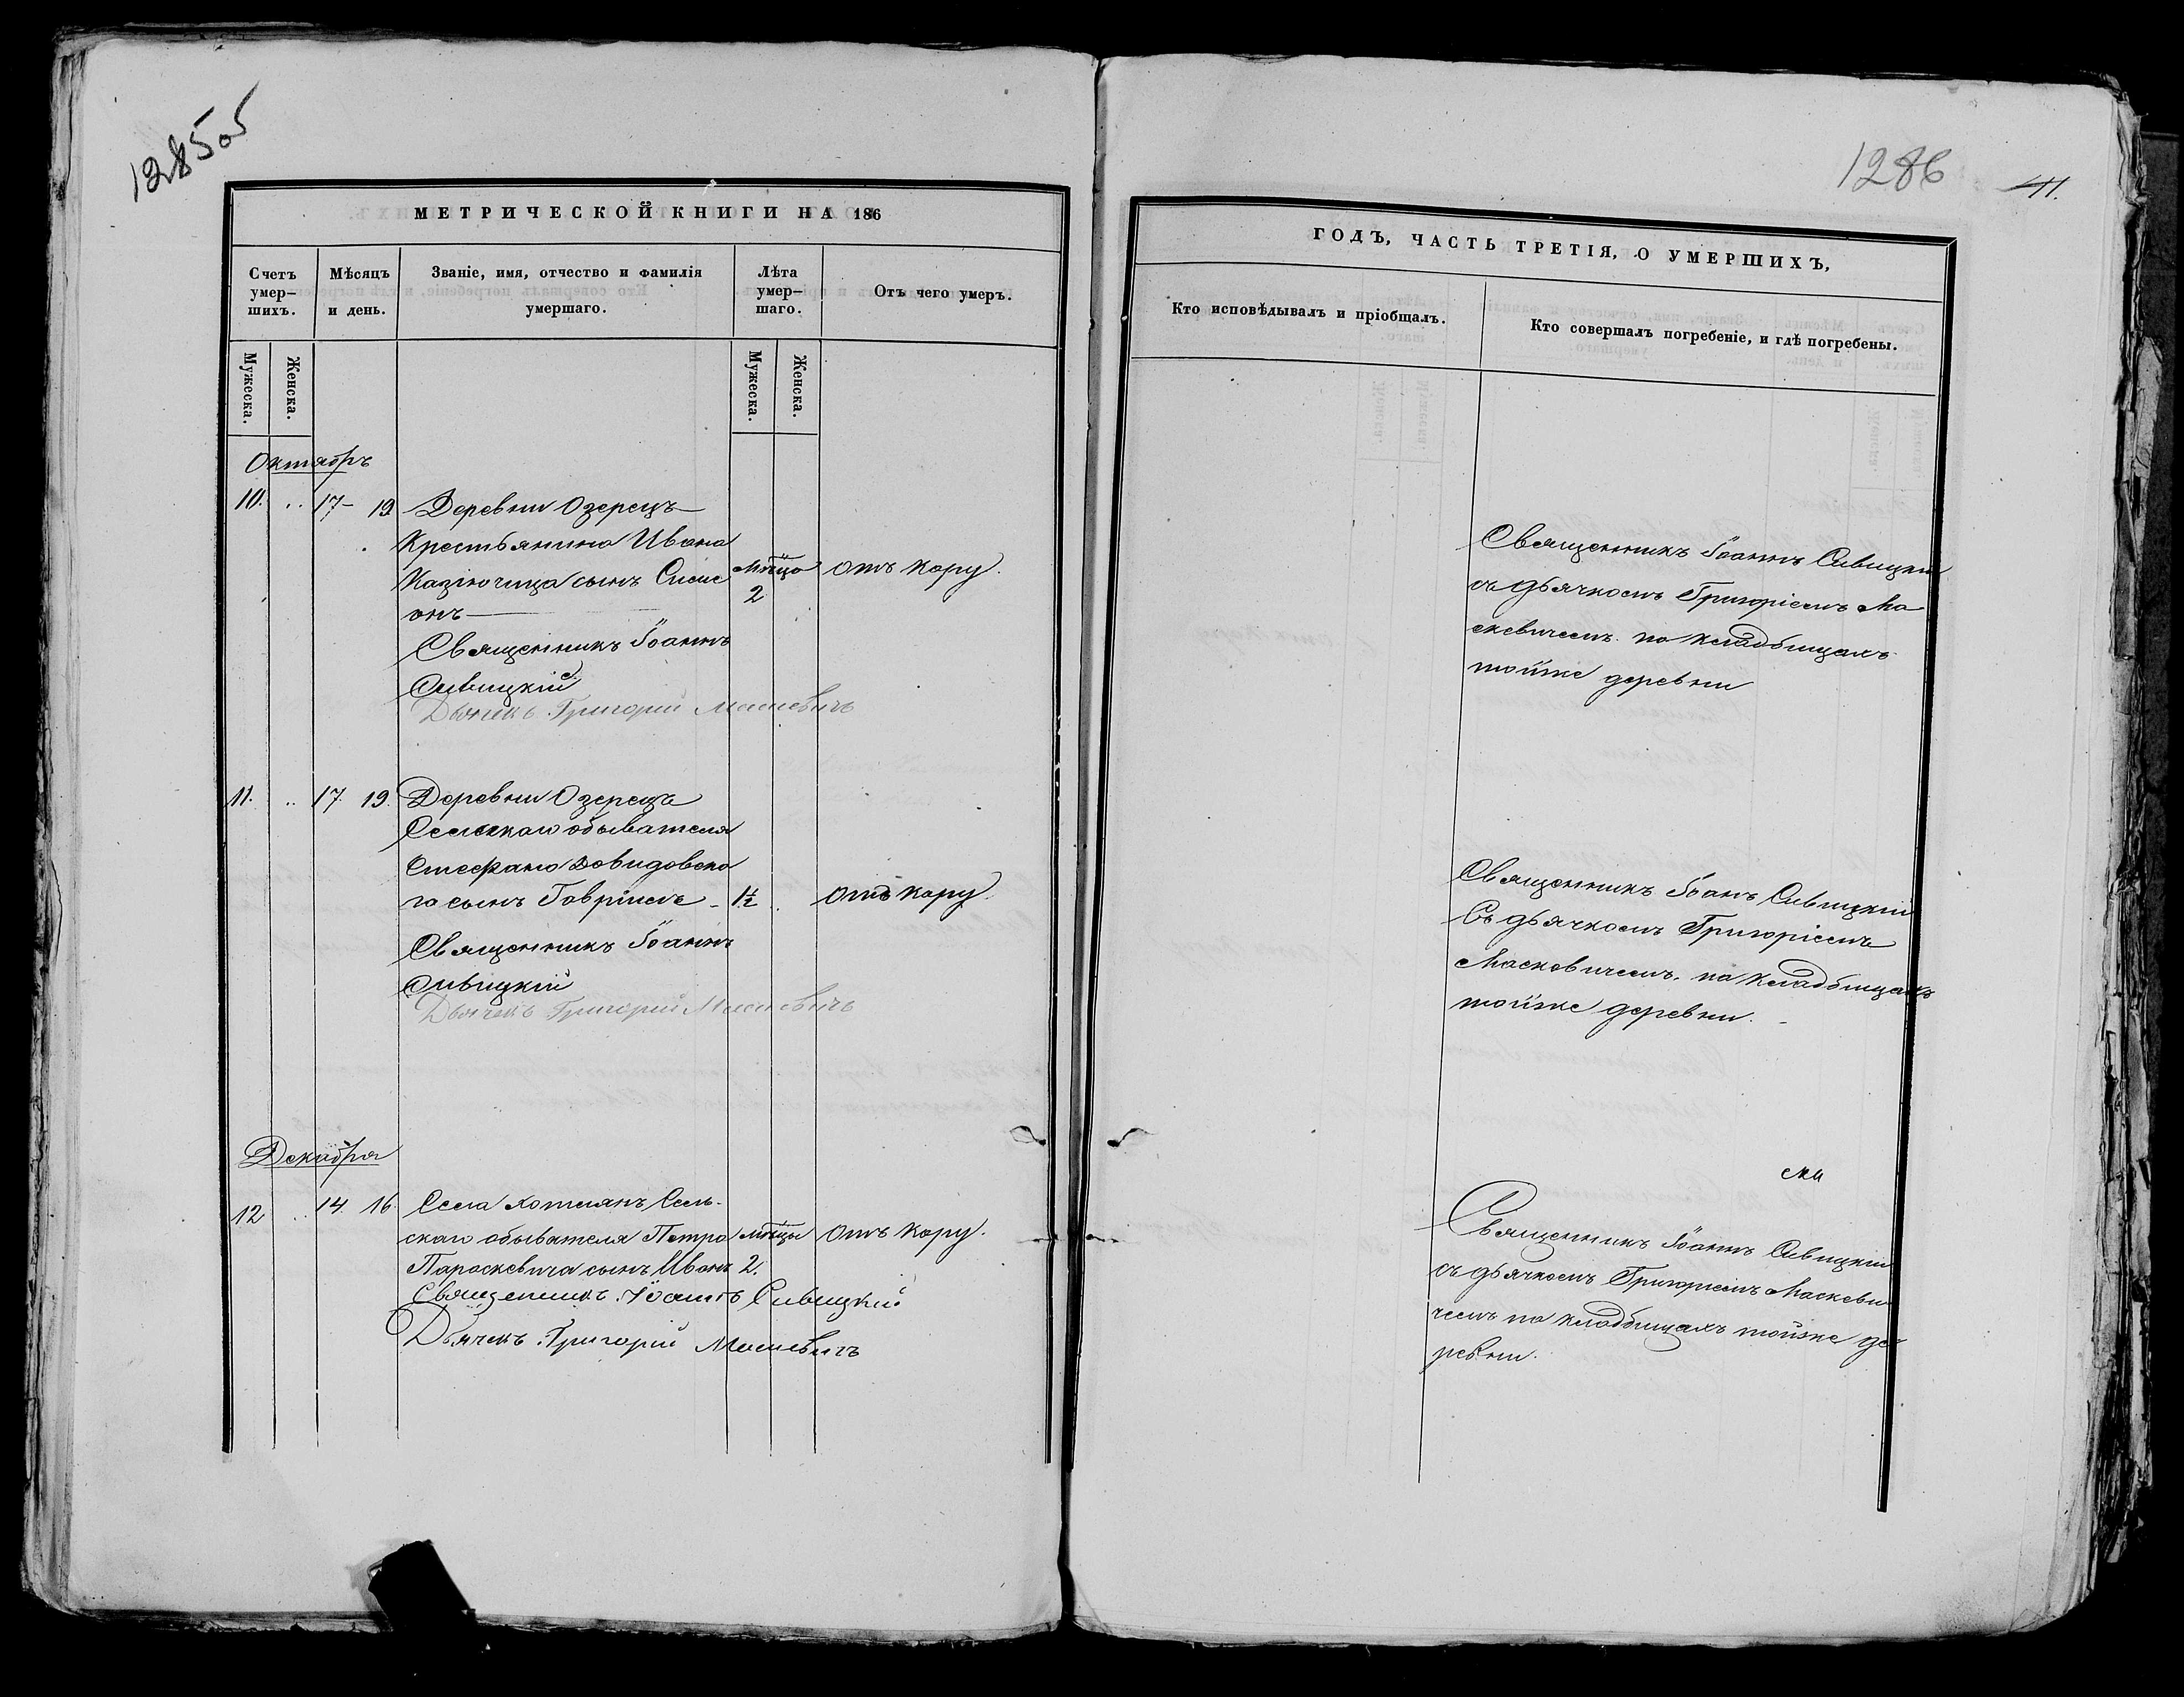 1285 об
МЕТРИЧЕСКОЙ КНИГИ НА 186
Счетъ умер-шихъ.
Мѣсяцъ и день.
Званіе, имя, отчество и фамилія умершаго.
Лѣта умер-шаго.
Отъ чего умеръ.
Мужеска.
Женска.
Мужеска.
Женска.
Октябръ
10. .. 17- 19 Деревни Озерецъ
Крестьянина Ивана
Казіючица сынъ Симе мѣсяца отъ кору.
онъ 2
Священникъ Іоаннъ
Сивицкій
Дьячекъ Григорій Маскевичъ
11. .. 17. 19. Деревни Озерецъ
Сельскаго обывателя
Стефана Довидовска
го сынъ Гавріилъ - 1½ отъ кору.
Священникъ Іоаннъ
Сивицкій
Дьячекъ Григорій Маскевичъ
Декабря
12 .. 14 16. Села Хотлянъ Сель-
скаго обывателя Петра мѣсяцы Отъ кору.
Параскевича сынъ Иванъ 2.
Священникъ Іоаннъ Сивицкій
Дьячекъ Григорій Маскевичъ
1286
11.
ГОДЪ, ЧАСТЬ ТРЕТІЯ, О УМЕРШИХЪ,
Кто исповѣдывалъ и пріобщалъ.
Кто совершалъ погребеніе, и гдѣ погребены.
Священникъ Іоаннъ Сивицкій
съ дьячкомъ Григоріемъ Ма
скевичемъ на кладбищахъ
тойже деревни
Священникъ Іоанъ Сивицкій
Съ дьячкомъ Григоріемъ
Маскевичемъ. на кладбищахъ
тойже деревни.
Священникъ Іоаннъ Сивицкій
съ дьячкомъ Григоріемъ Маскеви
чемъ на кладбищахъ тойже де
ревни.